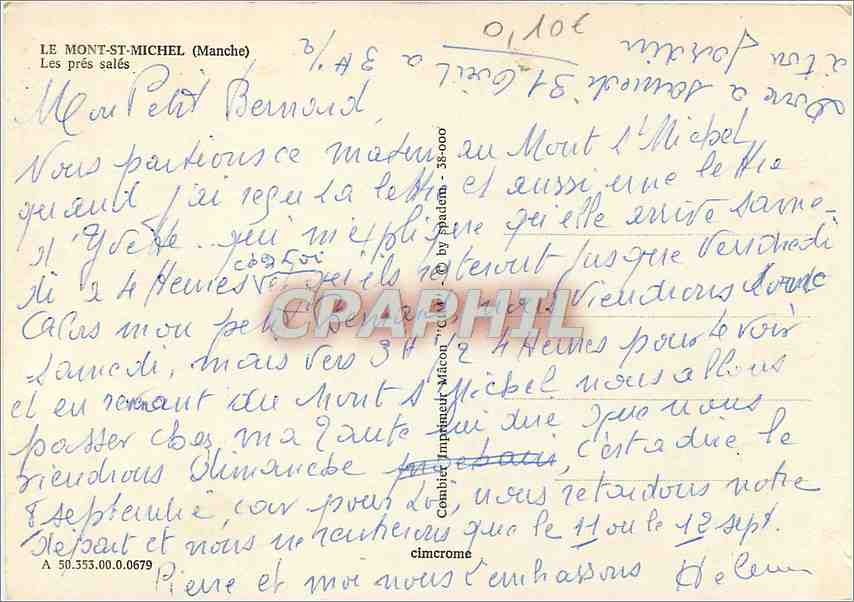 LE MONT-ST-MICHEL (Manche)
Les prés salés
Mon Petit Bernard,
Nous partions ce matin au Mont St Michel
quand j'ai reçu ta lettre et aussi une lettre
d'Yvette qui m'explique qu'elle arrive Same-
di à 4 Heures chez toi qu'ils resteront jusque Vendredi
Alors mon petit Bernard nous viendrons
Samedi, mais vers 3H 1/2 4 Heures pour te voir
et en revenant du Mont St Michel nous allons
passer chez ma Tante lui dire que nous
viendrons Dimanche, c'est a dire le
8 septembre, car pour toi, nous retardons notre
départ et nous ne rentrerons que le 11 ou le 12 sept.
Pierre et moi nous t'embrassons Helene
Donc a samedi 31 a
3H 1/2 a ton Jardin
Combier Imprimeur Mâcon "CIM" - © by spadem - 38-000
cimcrome
A 50.353.00.0.0679
CRAPHIL